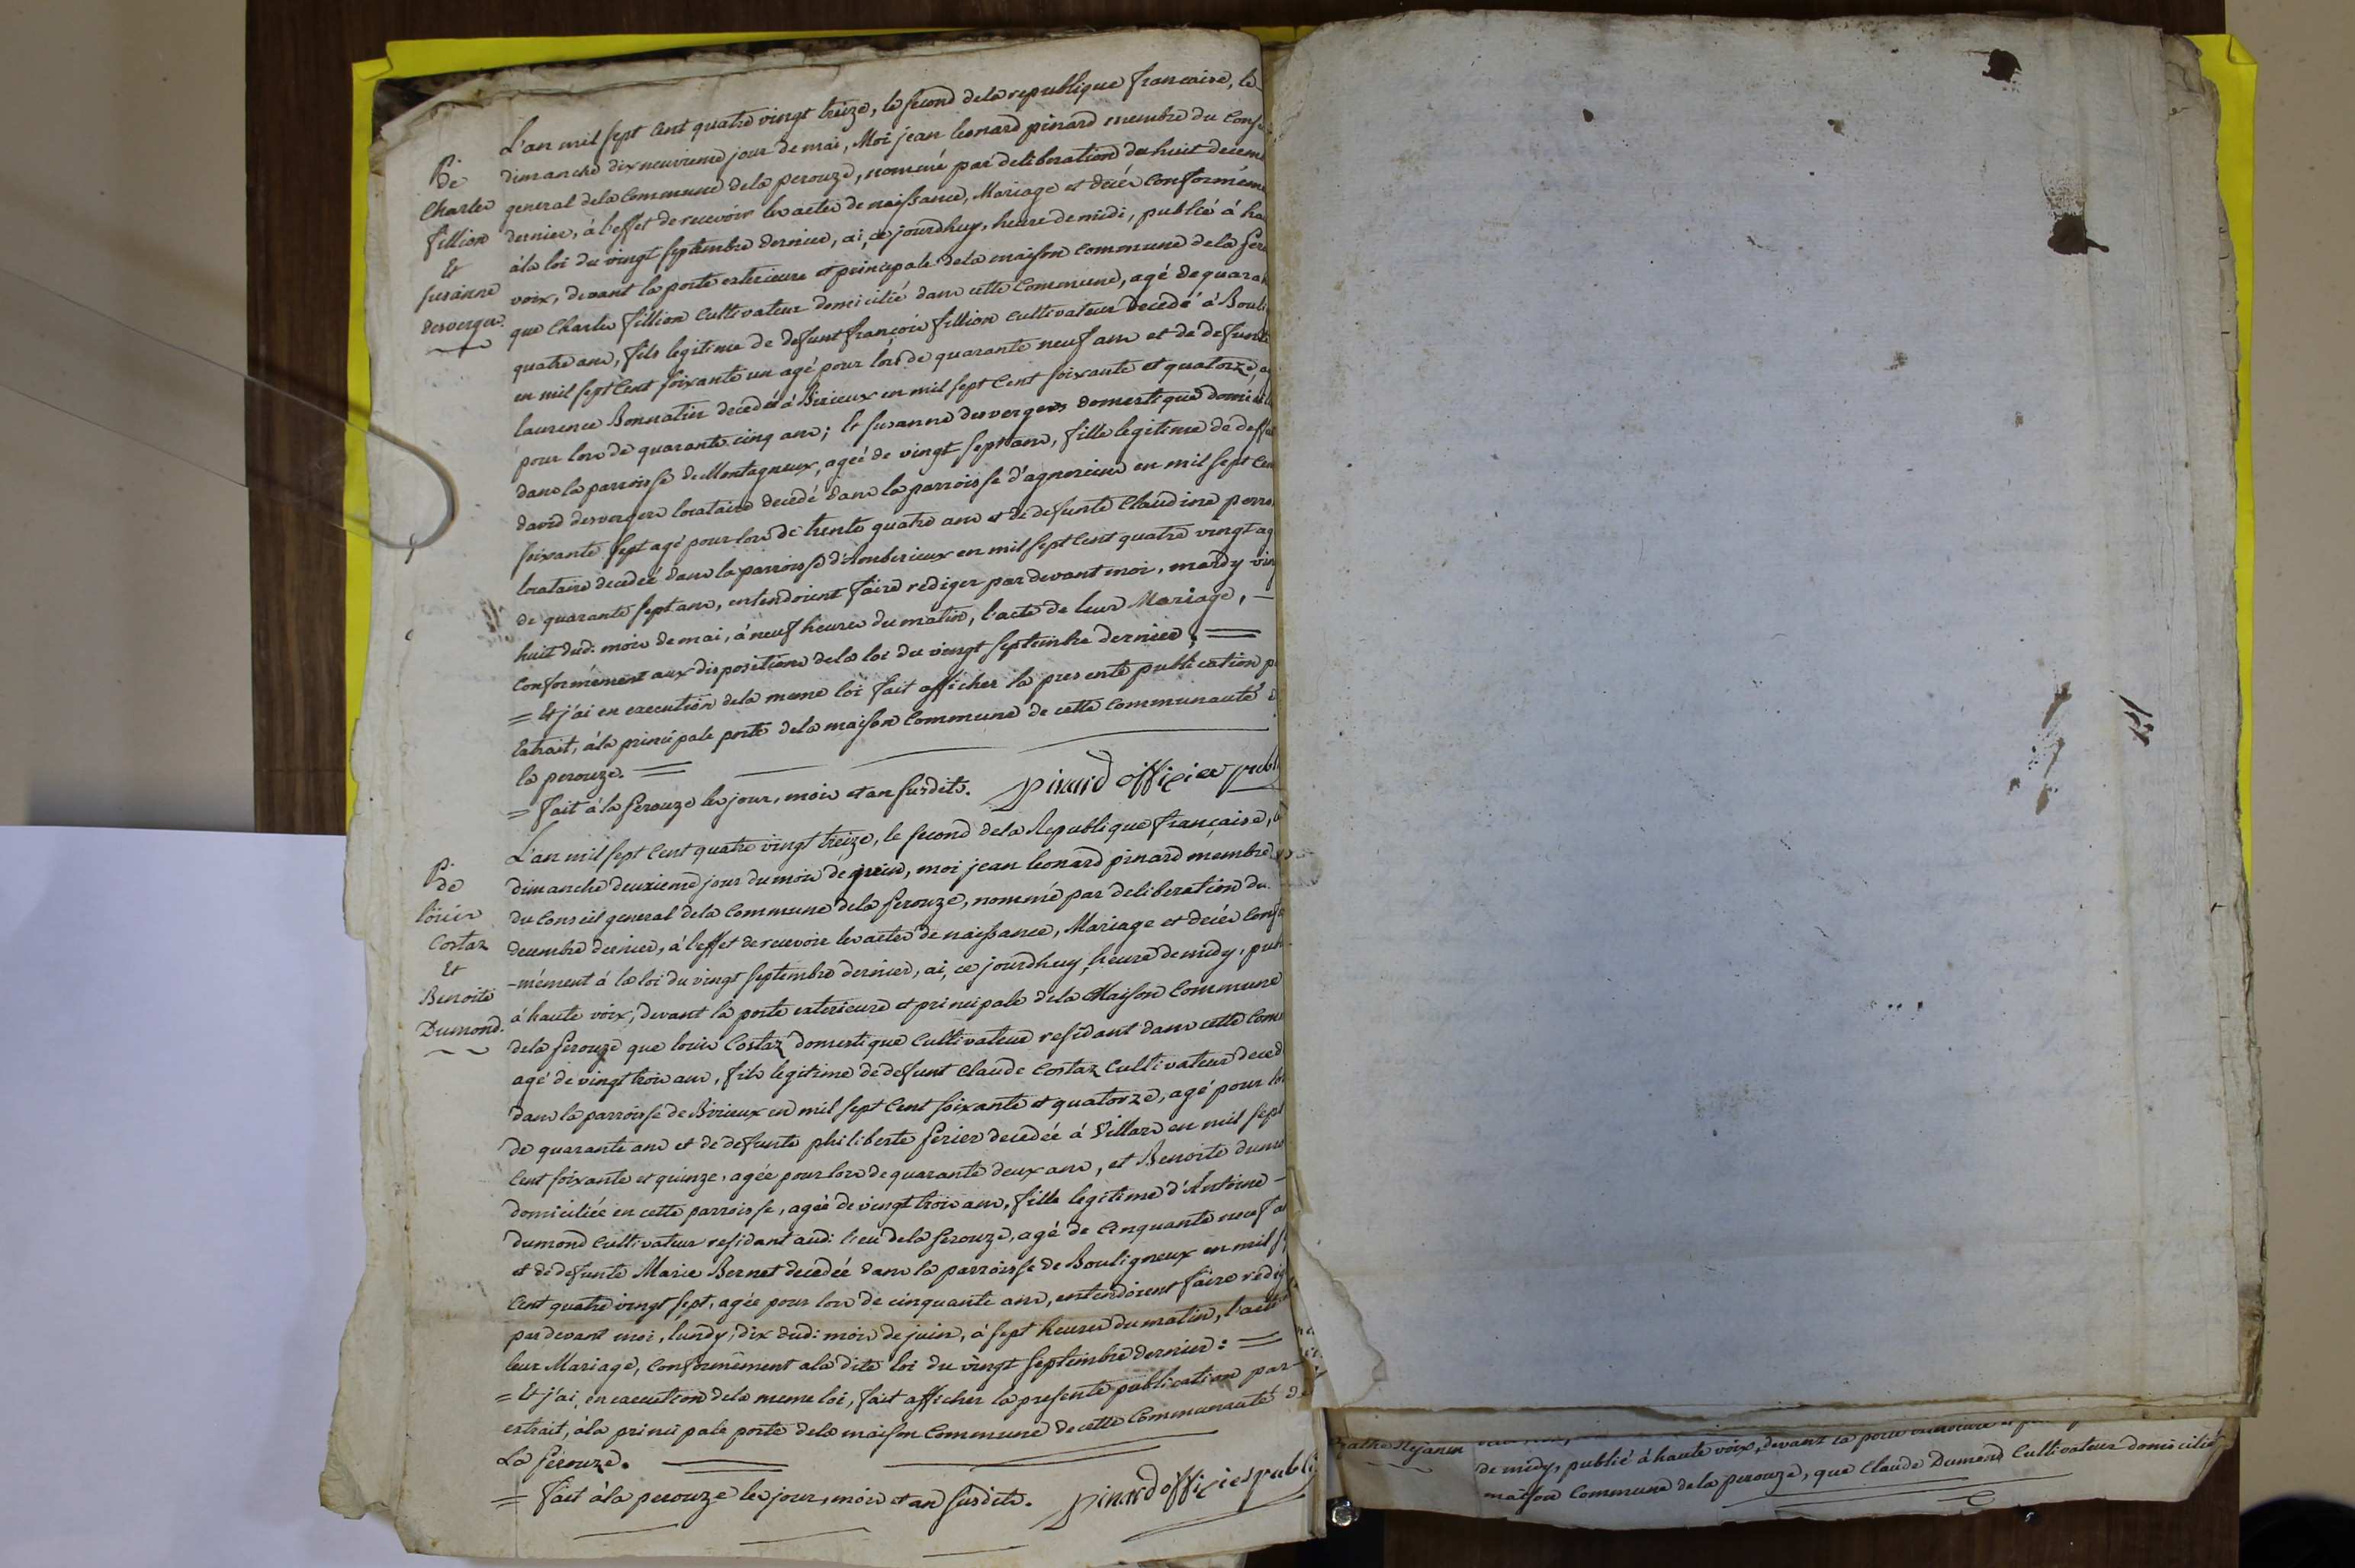 L'an mil sept cent quatre vingt treize, le second dela republique francaise, le
P.
de
Charles
fillion
Et
susanne
desverger.
dimanche dix neuvieme jour de mai, Moi jean leonard pinard membre du Cons
general dela Commune dela perouze, nommé par deliberation du huit decem
dernier, à l'effet de recevoir les actes de naissance, Mariage et décés Conformém
à la loi du vingt septembre dernier, ai, ce jourdhuy, heure de midi, publié à ha
voix, devant la porte exterieure et principale dela maison commune dela Per
que Charles fillion Cultivateur domicilié dans cette Commune, agé de quaran
quatre ans, fils legitime de defunt françois fillion Cultivateur decedé à Bouli
en mil sept Cent soixante un agé pour lors de quarante neuf ans et de defunte
laurence Bonnatier decedée à Birieux en mil sept Cent soixante et quatorze, a
pour lors de quarante cinq ans; Et susanne desvergers domestique domicil
dans la parroisse de Montagneux, ageé de vingt sept ans, fille legitime de deff
david desvergers locataire decedé dans la parroisse d'agnerieux en mil sept Cen
soixante sept agé pour lors de trente quatre ans et de defunte Claudine perro
locataire decedeé dans la parroisse d'Amberieux en mil sept Cent quatre vingt ag
de quarante sept ans, entendoient faire rediger par devant moi, mardy vin
huit dud. mois de mai, à neuf heures du matin, l'acte de leur Mariage, —
Conformément aux dispositions dela loi du vingt septembre dernier; =
= Et j'ai en execution dela meme loi fait afficher la presente publication p
Extrait, à la principale porte dela maison Commune de cette Communauté d
la perouze. =
= fait à la Perouze les jour, mois et an susdits. pinard officier publ
L'an mil sept Cent quatre vingt treize, le second dela Republique française,
P.
de
loüis
Costaz
Et
Benoite
Dumond.
dimanche deuxieme jour du mois de juin, moi jean leonard pinard membre
du Conseil general dela Commune dela Perouze, nommé par deliberation du
decembre dernier, à l'effet de recevoir les actes de naissance, Mariage et décés Conf
-mément à la loi du vingt septembre dernier, ai, ce jourdhuy, heure de midy, pub
à haute voix, devant la porte exterieure et principale dela Maison Commune
dela Perouze que louis Costaz domestique Cultivateur residant dans cette Com
agé de vingt trois ans, fils legitime de defunt Claude Costaz Cultivateur deced
dans la parroisse de Birieux en mil sept Cent soixante et quatorze, agé pour lo
de quarante ans et de defunte philiberte Perier decedée à Villars en mil sept
Cent soixante et quinze, agée pour lors de quarante deux ans, et Benoite dumo
domiciliée en cette parroisse, agée de vingt trois ans, fille legitime d'Antoine —
dumond Cultivateur residant aud: lieu dela Perouze, agé de Cinquante neuf a
et de defunte Marie Bernet decedée dans la parroisse de Bouligneux en mil s
Cent quatre vingt sept, agée pour lors de cinquante ans, entendoient faire redig
par devant moi, lundy, dix dud: mois de juin, à sept heures du matin, l'acte
leur Mariage, Conformément ala dite loi du vingt septembre dernier: =
= Et j'ai, en execution dela meme loi, fait afficher la presente publication par
extrait, à la principale porte dela maison Commune de cette Communauté de
La Perouze.
= fait à la perouze les jour, mois et an susdits. pinard officier publi
de midy, publié à haute voix, devant la porte exterieure et
maison Commune dela perouze, que Claude Dumond Cultivateur domicilié